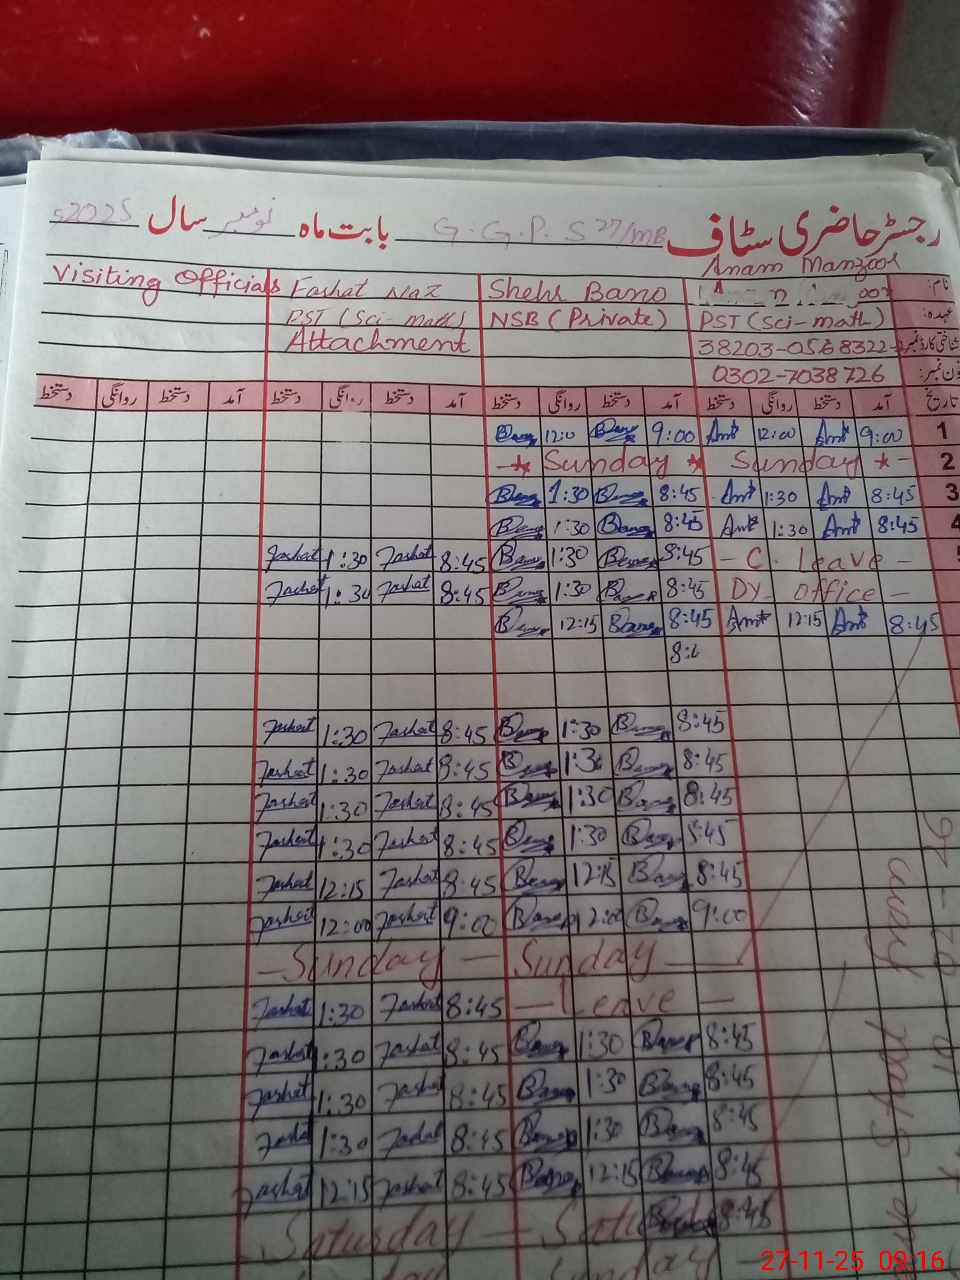 رجسٹر حاضری سٹاف G.G.P.S 27/MB بابت ماہ نومبر سال 2025ء
Anam Manzoor
نام: Shehr Bano Farhat Naz Visiting Officials
عہدہ: PST (Sci-math) NSB (Private) PST (Sci-math)
شناختی کارڈ نمبر: 38203-0568322- Attachment
فون نمبر: 0302-7038726
تاریخ آمد دستخط روانگی دستخط آمد دستخط روانگی دستخط آمد دستخط روانگی دستخط آمد دستخط روانگی دستخط
1 9:00 Amt 12:00 Amt 9:00 Bano 12:0 Bano
2 - Sunday - Sunday -
3 8:45 Amt 1:30 Amt 8:45 Bano 1:30 Bano
4 8:45 Amt 1:30 Amt 8:45 Bano 1:30 Bano
- C. Leave - 8:45 Bano 1:30 Bano 8:45 Farhat 1:30 Farhat
DY office - 8:45 Bano 1:30 Bano 8:45 Farhat 1:30 Farhat
8:45 Amt 12:15 Amt 8:45 Bano 12:15 Bano
8:4
8:45 Bano 1:30 Bano 8:45 Farhat 1:30 Farhat
8:45 Bano 1:30 Bano 8:45 Farhat 1:30 Farhat
8:45 Bano 1:30 Bano 8:45 Farhat 1:30 Farhat
8:45 Bano 1:30 Bano 8:45 Farhat 1:30 Farhat
8:45 Bano 12:15 Bano 8:45 Farhat 12:15 Farhat
9:00 Bano 12:00 Bano 9:00 Farhat 12:00 Farhat
- Sunday - Sunday -
- Leave - 8:45 Farhat 1:30 Farhat
8:45 Bano 1:30 Bano 8:45 Farhat 1:30 Farhat
8:45 Bano 1:30 Bano 8:45 Farhat 1:30 Farhat
8:45 Bano 1:30 Bano 8:45 Farhat 1:30 Farhat
8:45 Bano 12:15 Bano 8:45 Farhat 12:15 Farhat
- Saturday - 8:45
Sunday
Start from
27-11-25 09:16